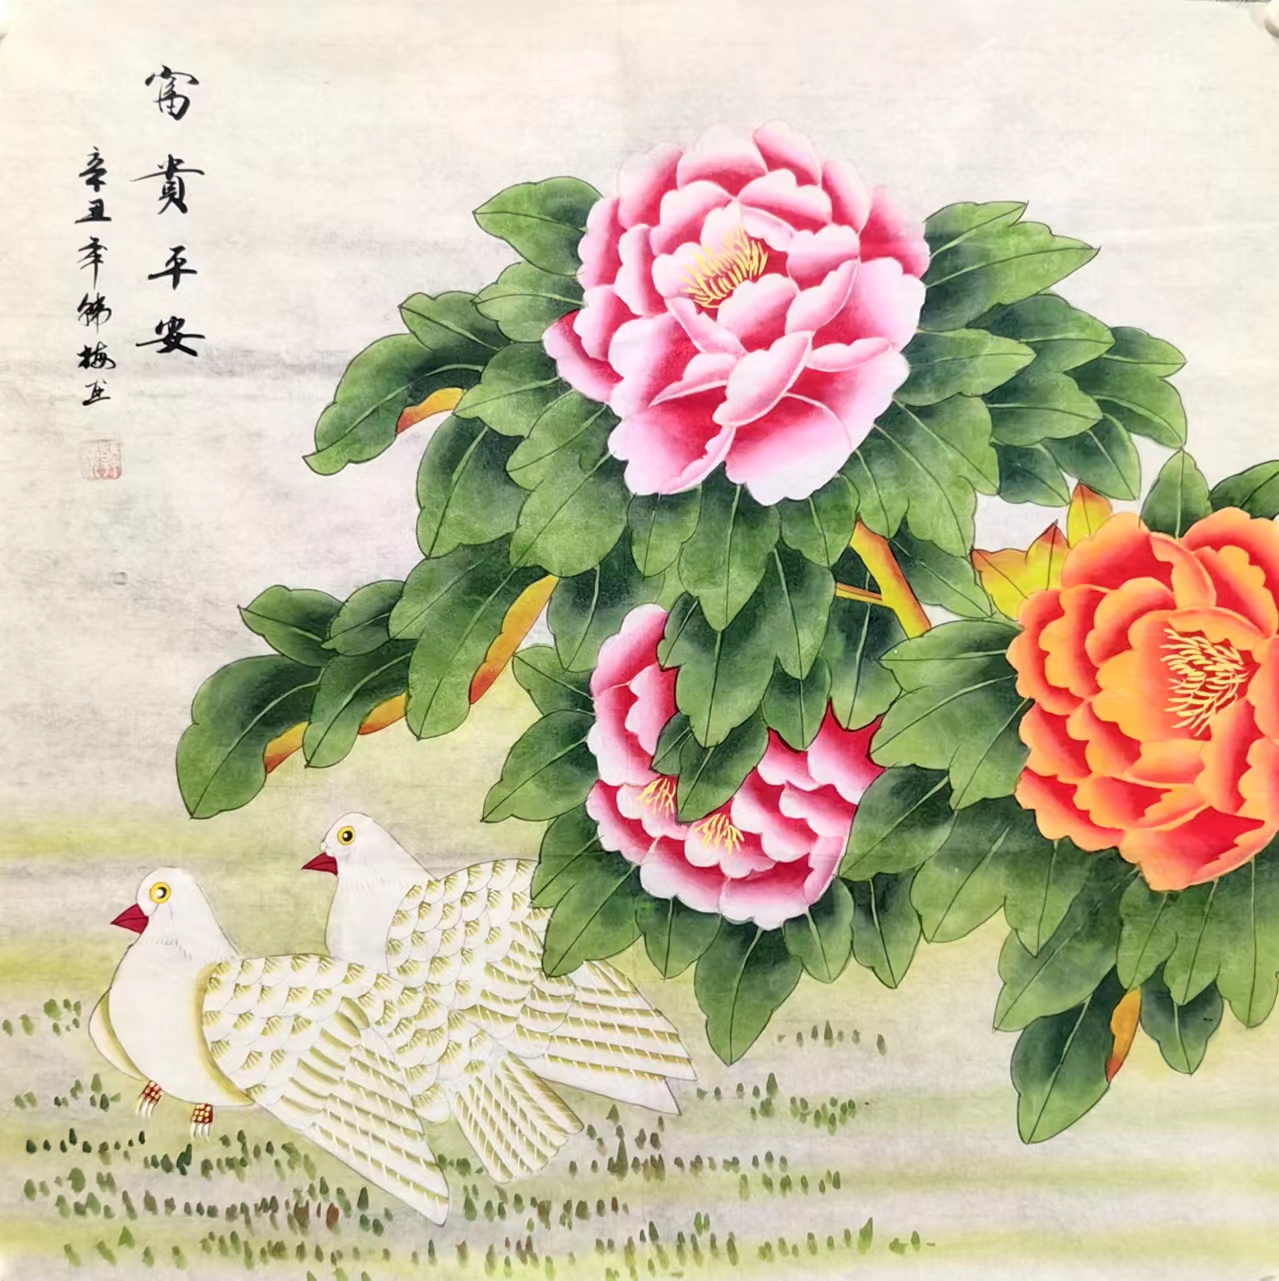 富貴平安
辛丑年錦梅画